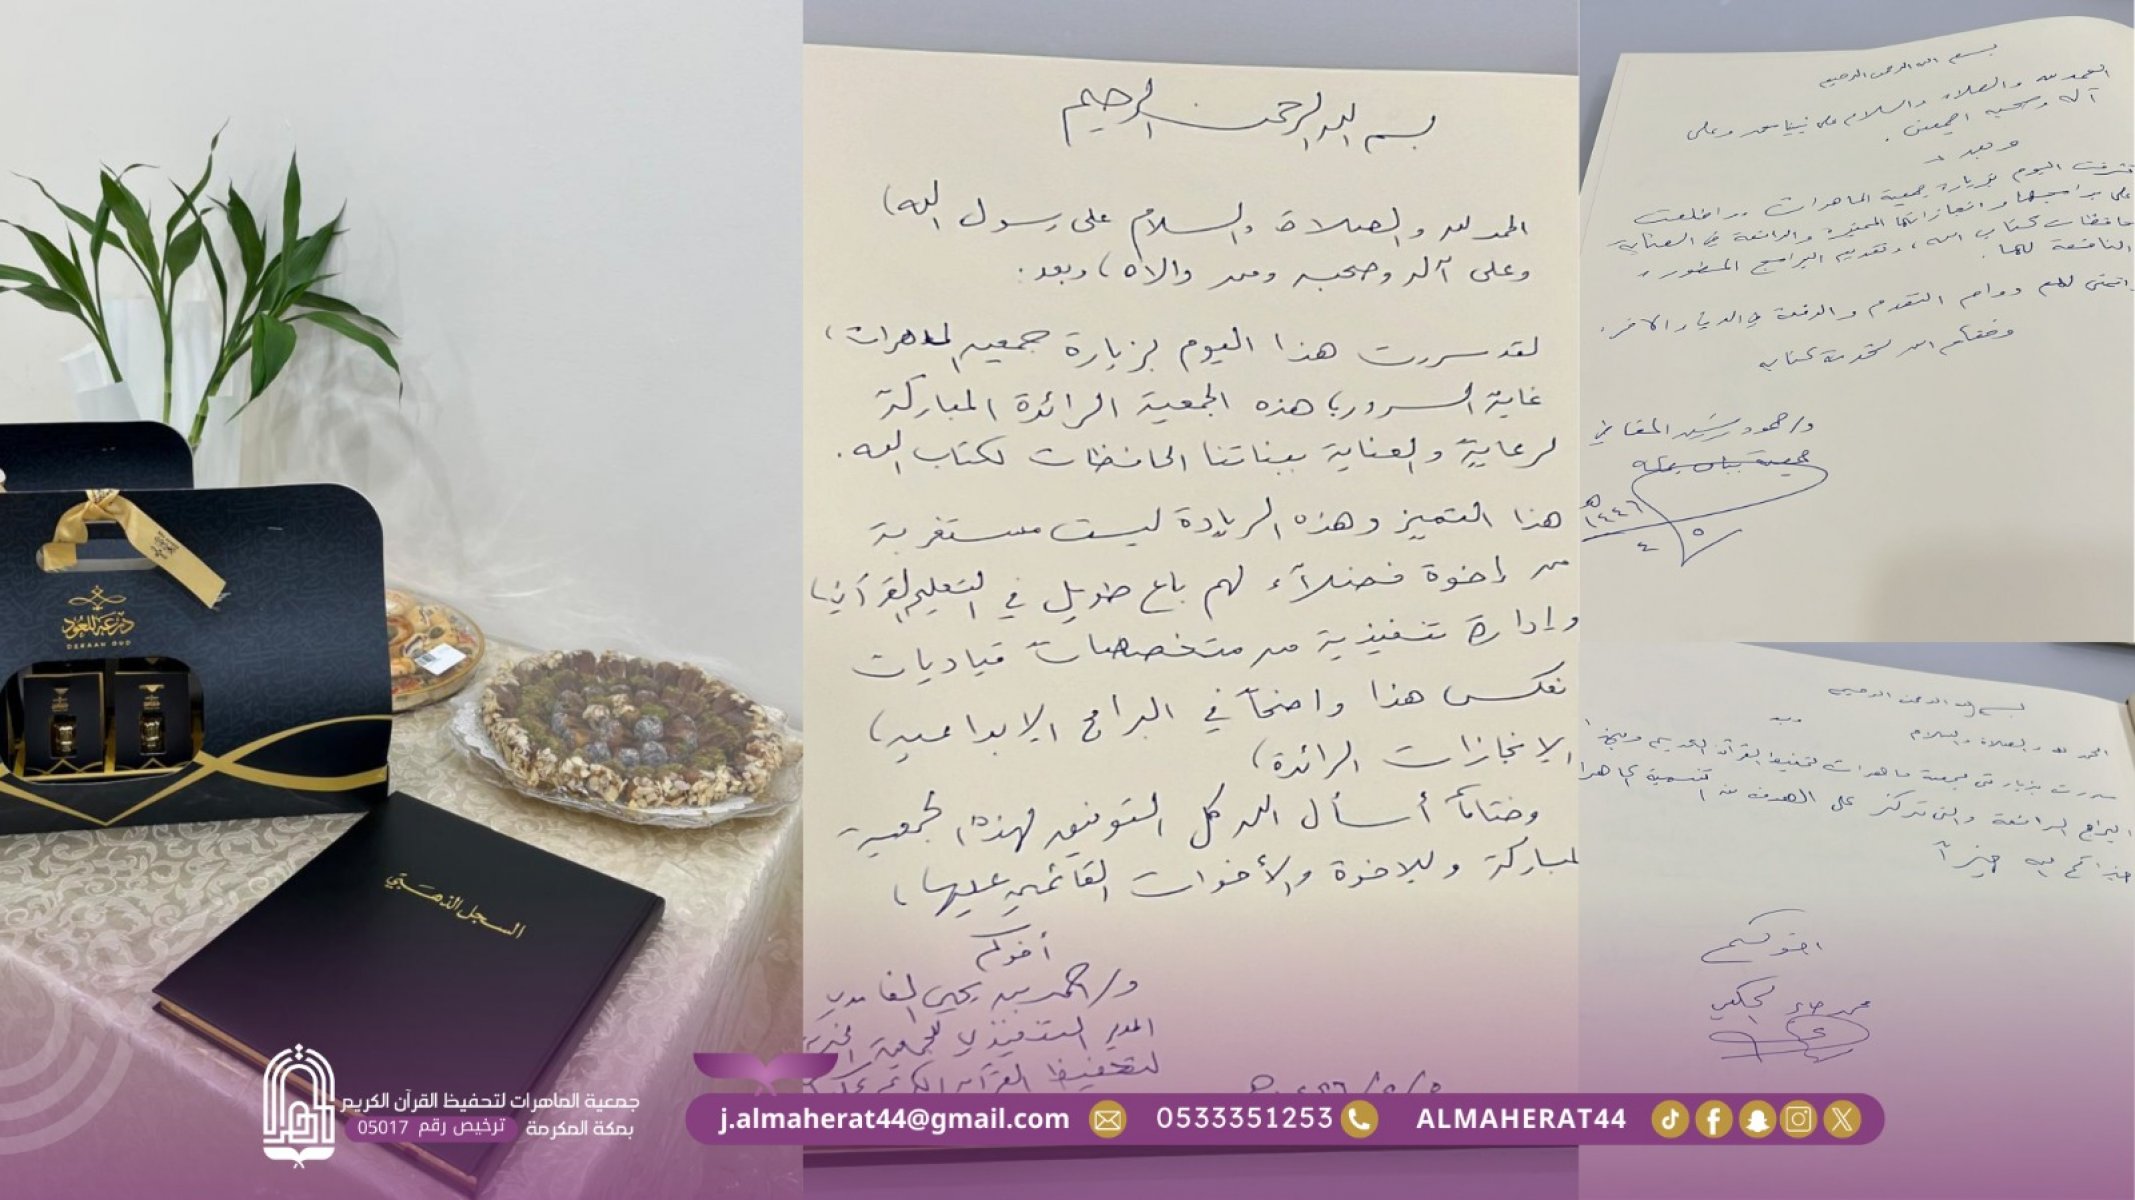 درعة للعود
DERAAH OUD
السجل الذهبي
بسم الله الرحمن الرحيم
الحمد لله والصلاة والسلام على رسول الله،
وعلى آله وصحبه ومن والاه، وبعد:
لقد سررت هذا اليوم بزيارة جمعية الماهرات،
غاية السرور، هذه الجمعية الرائدة المباركة
لرعاية والعناية ببناتنا الحافظات لكتاب الله.
هذا التميز وهذه الريادة ليست مستغربة
من إخوة فضلاء لهم باع طويل في التعليم القرآني،
وإدارة تنفيذية من متخصصات قياديات
نعكس هذا واضحاً في البرامج الابداعية،
الإنجازات الرائدة،
وختاماً أسأل الله كل التوفيق لهذه الجمعية
المباركة وللاخوة والأخوات القائمين عليها،
أخوكم
د/ احمد بن يحيى الغامدي
المدير التنفيذي للجمعية الخيرية
لتحفيظ القرآن الكريم
بسم الله الرحمن الرحيم
الحمد لله والصلاة والسلام على نبينا محمد وعلى
آله وصحبه اجمعين.
وبعد
تشرفت اليوم بزيارة جمعية الماهرات واطلعت
على برامجها وانجازاتها المتميزة والرائعة في العناية
حافظات كتاب الله، وتقديم البرامج المطورة
النافعة لهما.
اتمنى لهم دوام التقدم والرفعة في الدنيا والاخرة.
وفقكم الله لخدمة كتابه
د/ حمود
١٤٤٦هـ
٥
٤
بسم الله الرحمن الرحيم
الحمد لله والصلاة والسلام وبعد
سررت بزيارتي لجمعية ماهرات لتحفيظ القرآن الكريم
البرامج الرائعة والتي تركز على الهدف من تسمية الماهرا
جزاكم الله خيراً
اخوكم
محمد
جمعية الماهرات لتحفيظ القرآن الكريم
بمكة المكرمة ترخيص رقم 05017
j.almaherat44@gmail.com 0533351253 ALMAHERAT44